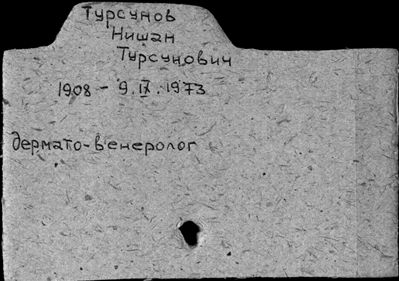 Турсунов
Нишан
Турсунович
1908 - 9.IX.1973
дермато-венеролог